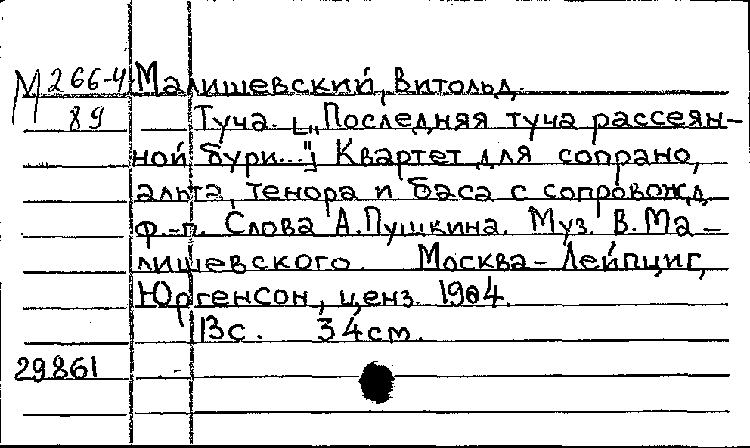 М 266-4 Малишевский, Витольд.
89 Туча. [„Последняя туча рассеян-
ной бури..."] Квартет для сопрано,
альта, тенора и баса с сопровожд.
ф.-п. Слова А.Пушкина. Муз. В.Ма-
лишевского. Москва-Лейпциг,
Юргенсон, ценз. 1904.
13 с. 34 см.
29861